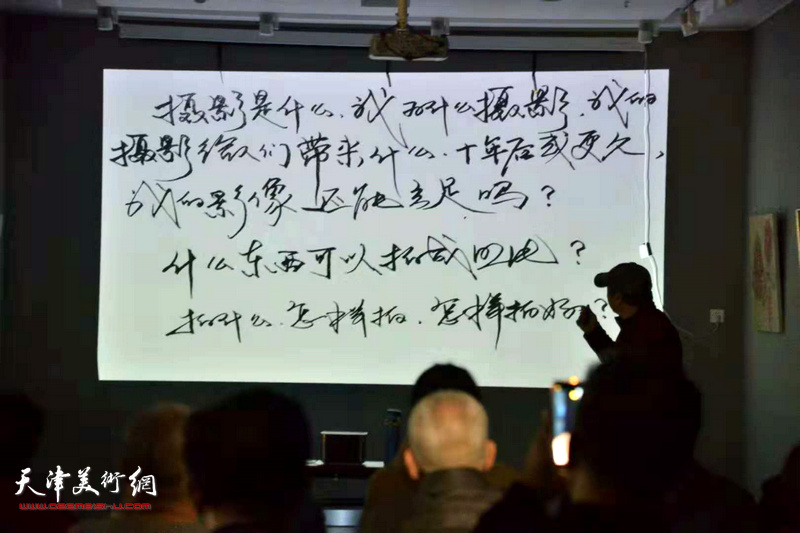 摄影是什么、我为什么摄影、我的
摄影给人们带来什么、十年后或更久，
我的影像还能立足吗？
什么东西可以拍成
拍什么、怎样拍、怎样拍好？
天津美術網